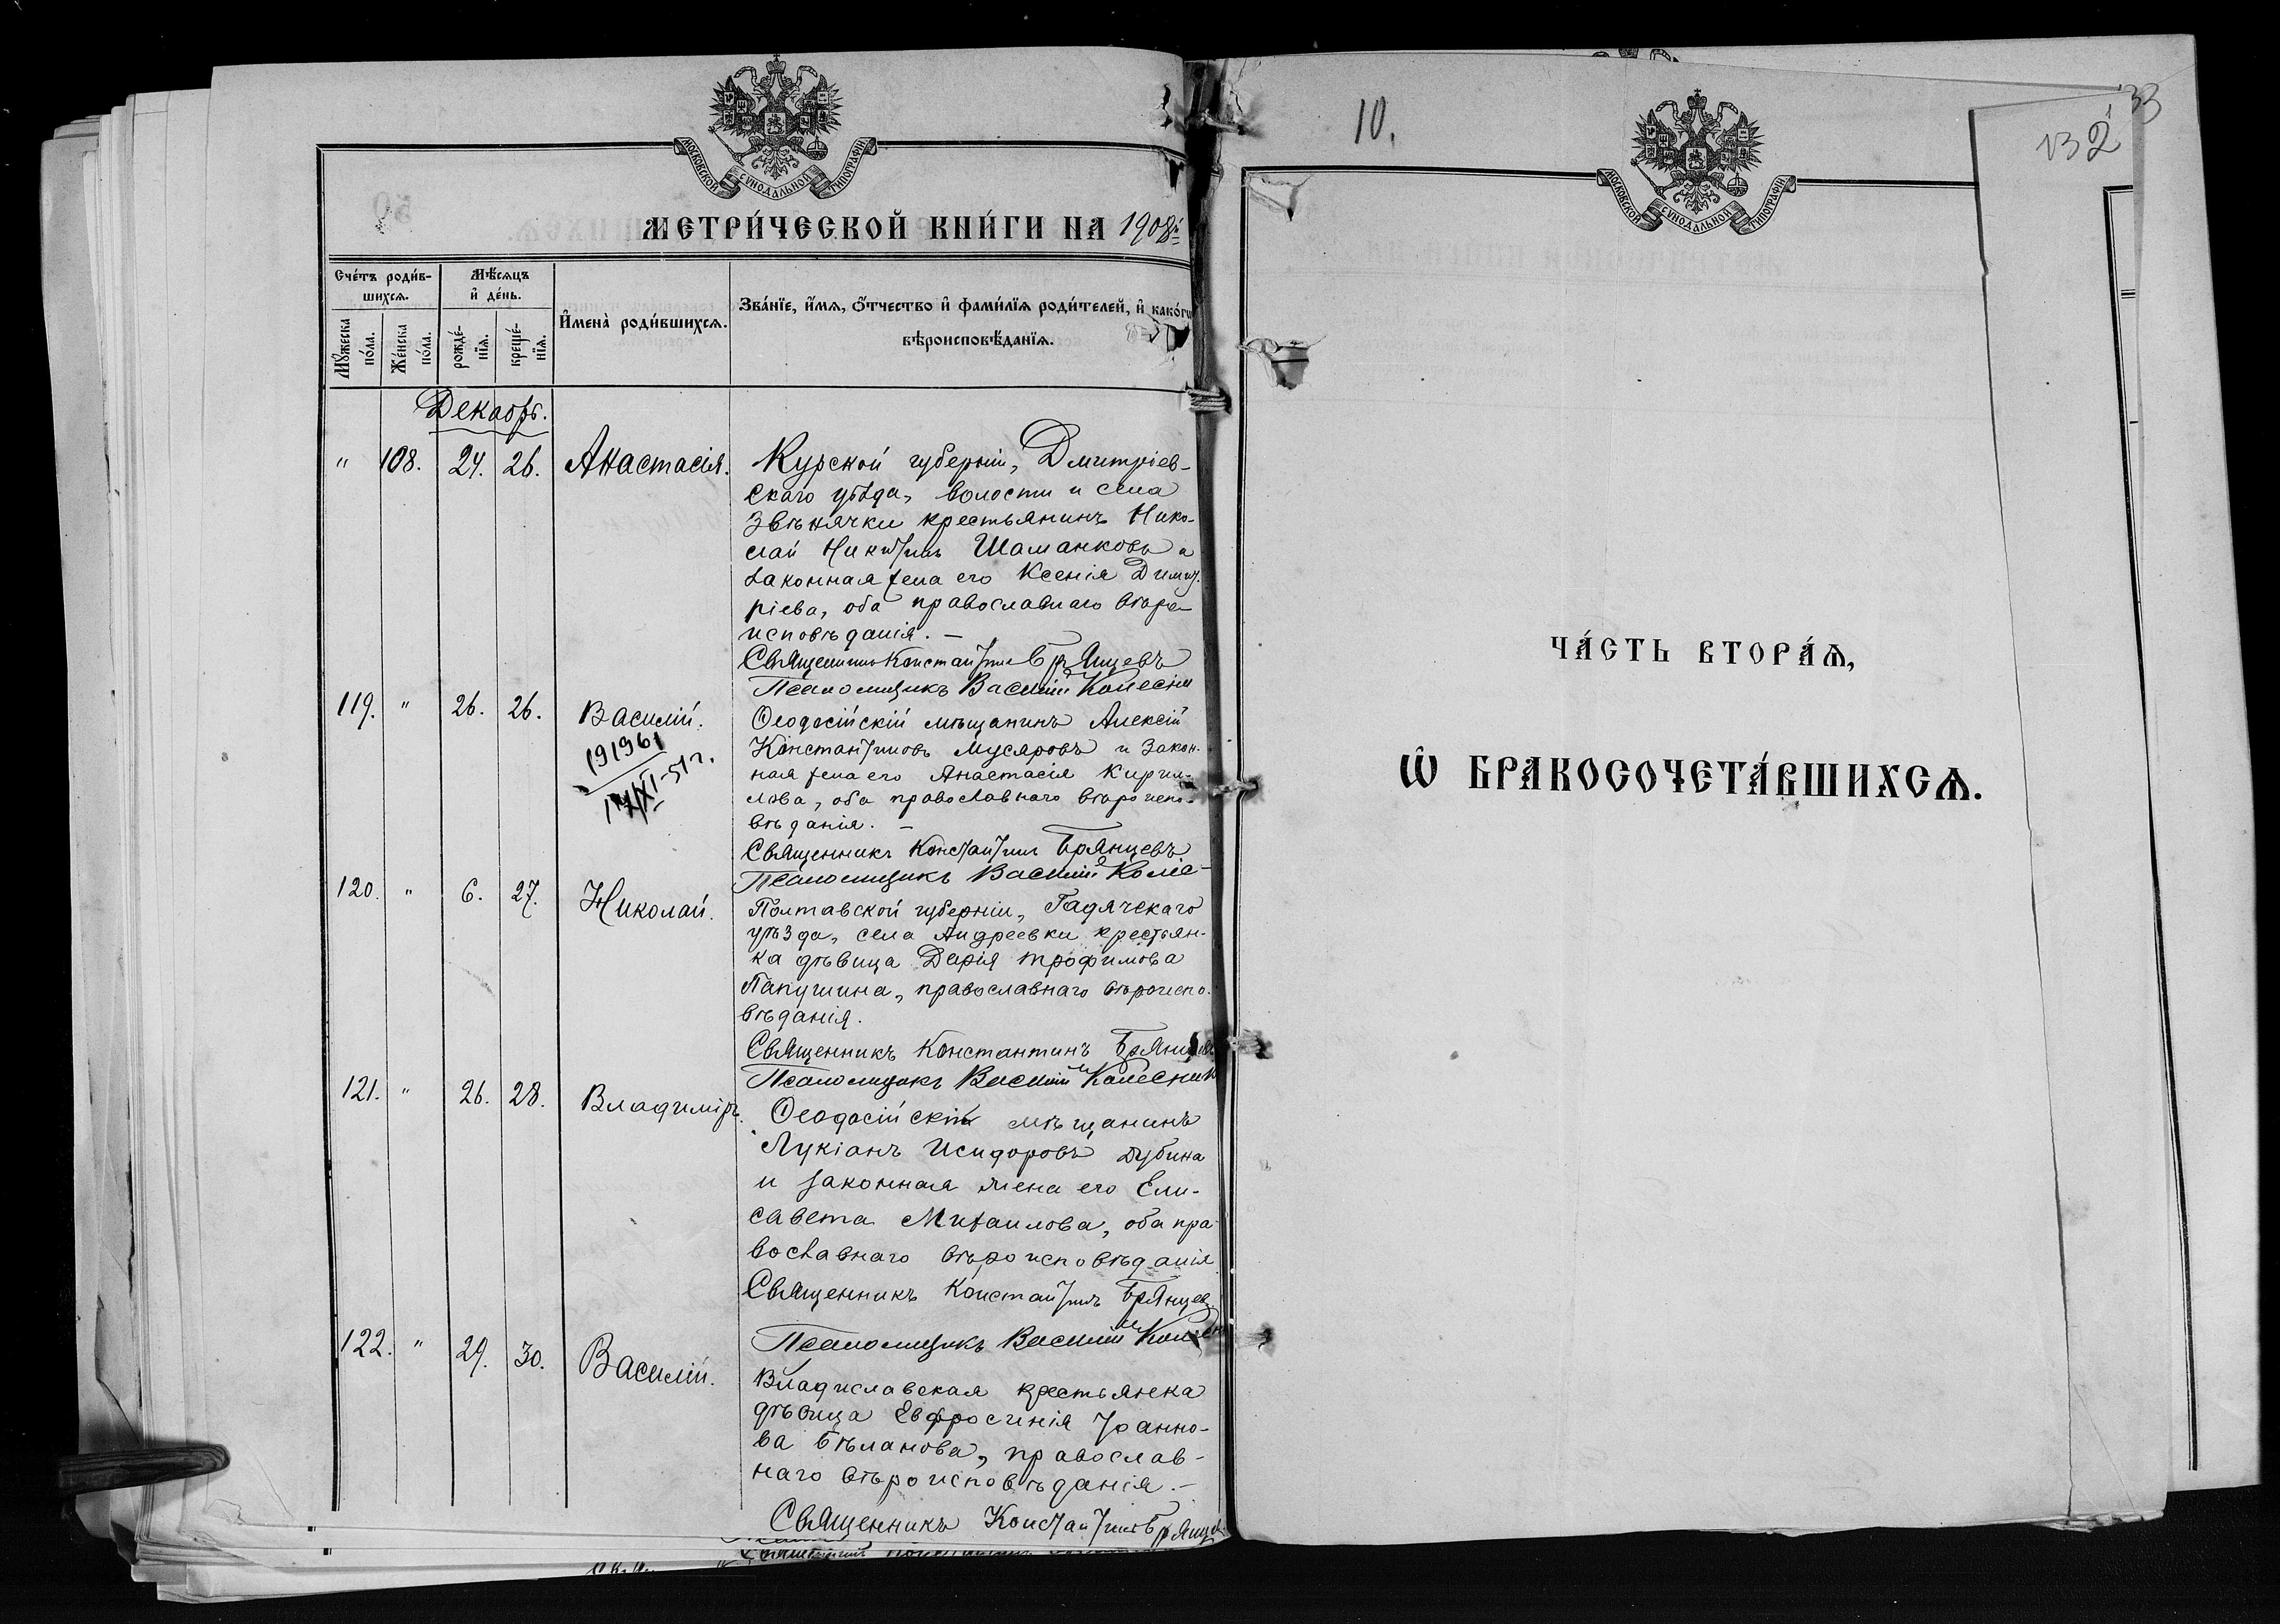 МОСКОВСКОЙ СѴНОДАЛЬНОЙ ТИПОГРАФІИ.
МЕТРИ́ЧЕСКОЙ КНИ́ГИ НА 1908й
Сче́тъ роди́в-
шихсѧ.
Мѣ́сѧцъ
и҆ де́нь.
И҆мена̀ роди́вшихсѧ.
Зва́нїе, и҆́мѧ, ѻ҆́тчество и҆ фами́лїѧ роди́телей, и҆ како́гѡ
вѣроисповѣ́данїѧ.
Мꙋ́жеска
по́ла.
Же́нска
по́ла.
рожде́-
нїѧ.
креще́-
нїѧ.
Декабрь.
" 108. 24. 26. Анастасія. Курской губерніи, Дмитріев-
скаго уѣзда, волости и села
Звѣнячки крестьянинъ Нико-
лай Никитинъ Шаманковъ и
законная жена его Ксенія Димит-
ріева, оба православнаго вѣро-
исповѣданія. —
Священникъ Константинъ Брянцевъ
Псаломщикъ Василій Колесни
119. " 26. 26. Василій. Ѳеодосійскій мѣщанинъ Алексій
Константиновъ Мусяровъ и закон-
ная жена его Анастасія Кирил-
лова, оба православнаго вѣроиспо-
вѣданія. —
191961
17/XI-51г.
Священникъ Константинъ Брянцевъ
Псаломщикъ Василій Колес-
120. " 6. 27. Николай. Полтавской губерніи, Гадячскаго
уѣзда, села Андреевки крестьян-
ка дѣвица Дарія Трофимова
Папушина, православнаго вѣроиспо-
вѣданія.
Священникъ Константинъ Брянцевъ
Псаломщикъ Василій Колесник
121. " 26. 28. Владиміръ. Ѳеодосійскій мѣщанинъ
Лукіанъ Исидоровъ Дубина
и законная жена его Ели-
савета Михаилова, оба пра-
вославнаго вѣроисповѣданія
Священникъ Константинъ Брянцев
Псаломщикъ Василій Колесн
122. " 29. 30. Василій. Владиславская крестьянка
дѣвица Евфросинія Іоанно-
ва Бѣланова, православ-
наго вѣроисповѣданія. —
Священникъ Константинъ Брянцев
10.
132
33
МОСКОВСКОЙ СѴНОДАЛЬНОЙ ТИПОГРАФІИ.
ЧА́СТЬ ВТОРА́Ѧ,
Ѽ БРАКОСОЧЕТА́ВШИХСѦ.